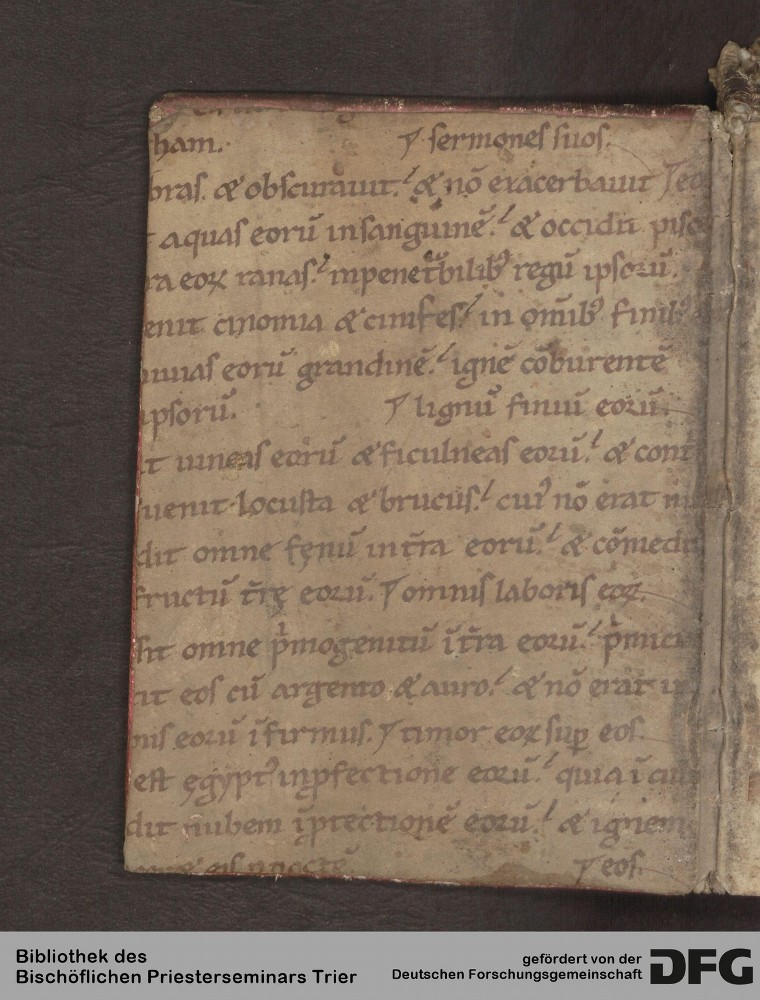 ham. sermones suos.
bras. & obscurauit. & nō exacerbauit
aquas eorū insanguinē. & occidit pisc
ra eoꝝ ranas. inpenet̄bilibꝰ regū ipsorū.
enit cinomia & cinifes. in om̄ibꝰ finibꝰ
uuias eorū grandinē. ignē cōburentē
ipsorū. lignū finiū eorū.
t uineas eorū & ficulneas eorū. & cont
uenit locusta & brucus. cuiꝰ nō erat nu
dit omne fęnū int̄ra eorū. & cōmedit
fructū t̄rę eorū. omnis laboris eoꝝ.
sit omne p̄mogenitū īt̄ra eorū. p̄mici
it eos cū argento & auro. & nō erat in
bis eorū īfirmus. timor eoꝝ suꝑ eos.
est ęgyptꝰ inꝓfectione eorū. quia īcu
dit nubem īꝓtectionē eorū. & ignem
eis ꝑ noctē eos.
Bibliothek des
Bischöflichen Priesterseminars Trier
gefördert von der
Deutschen Forschungsgemeinschaft DFG